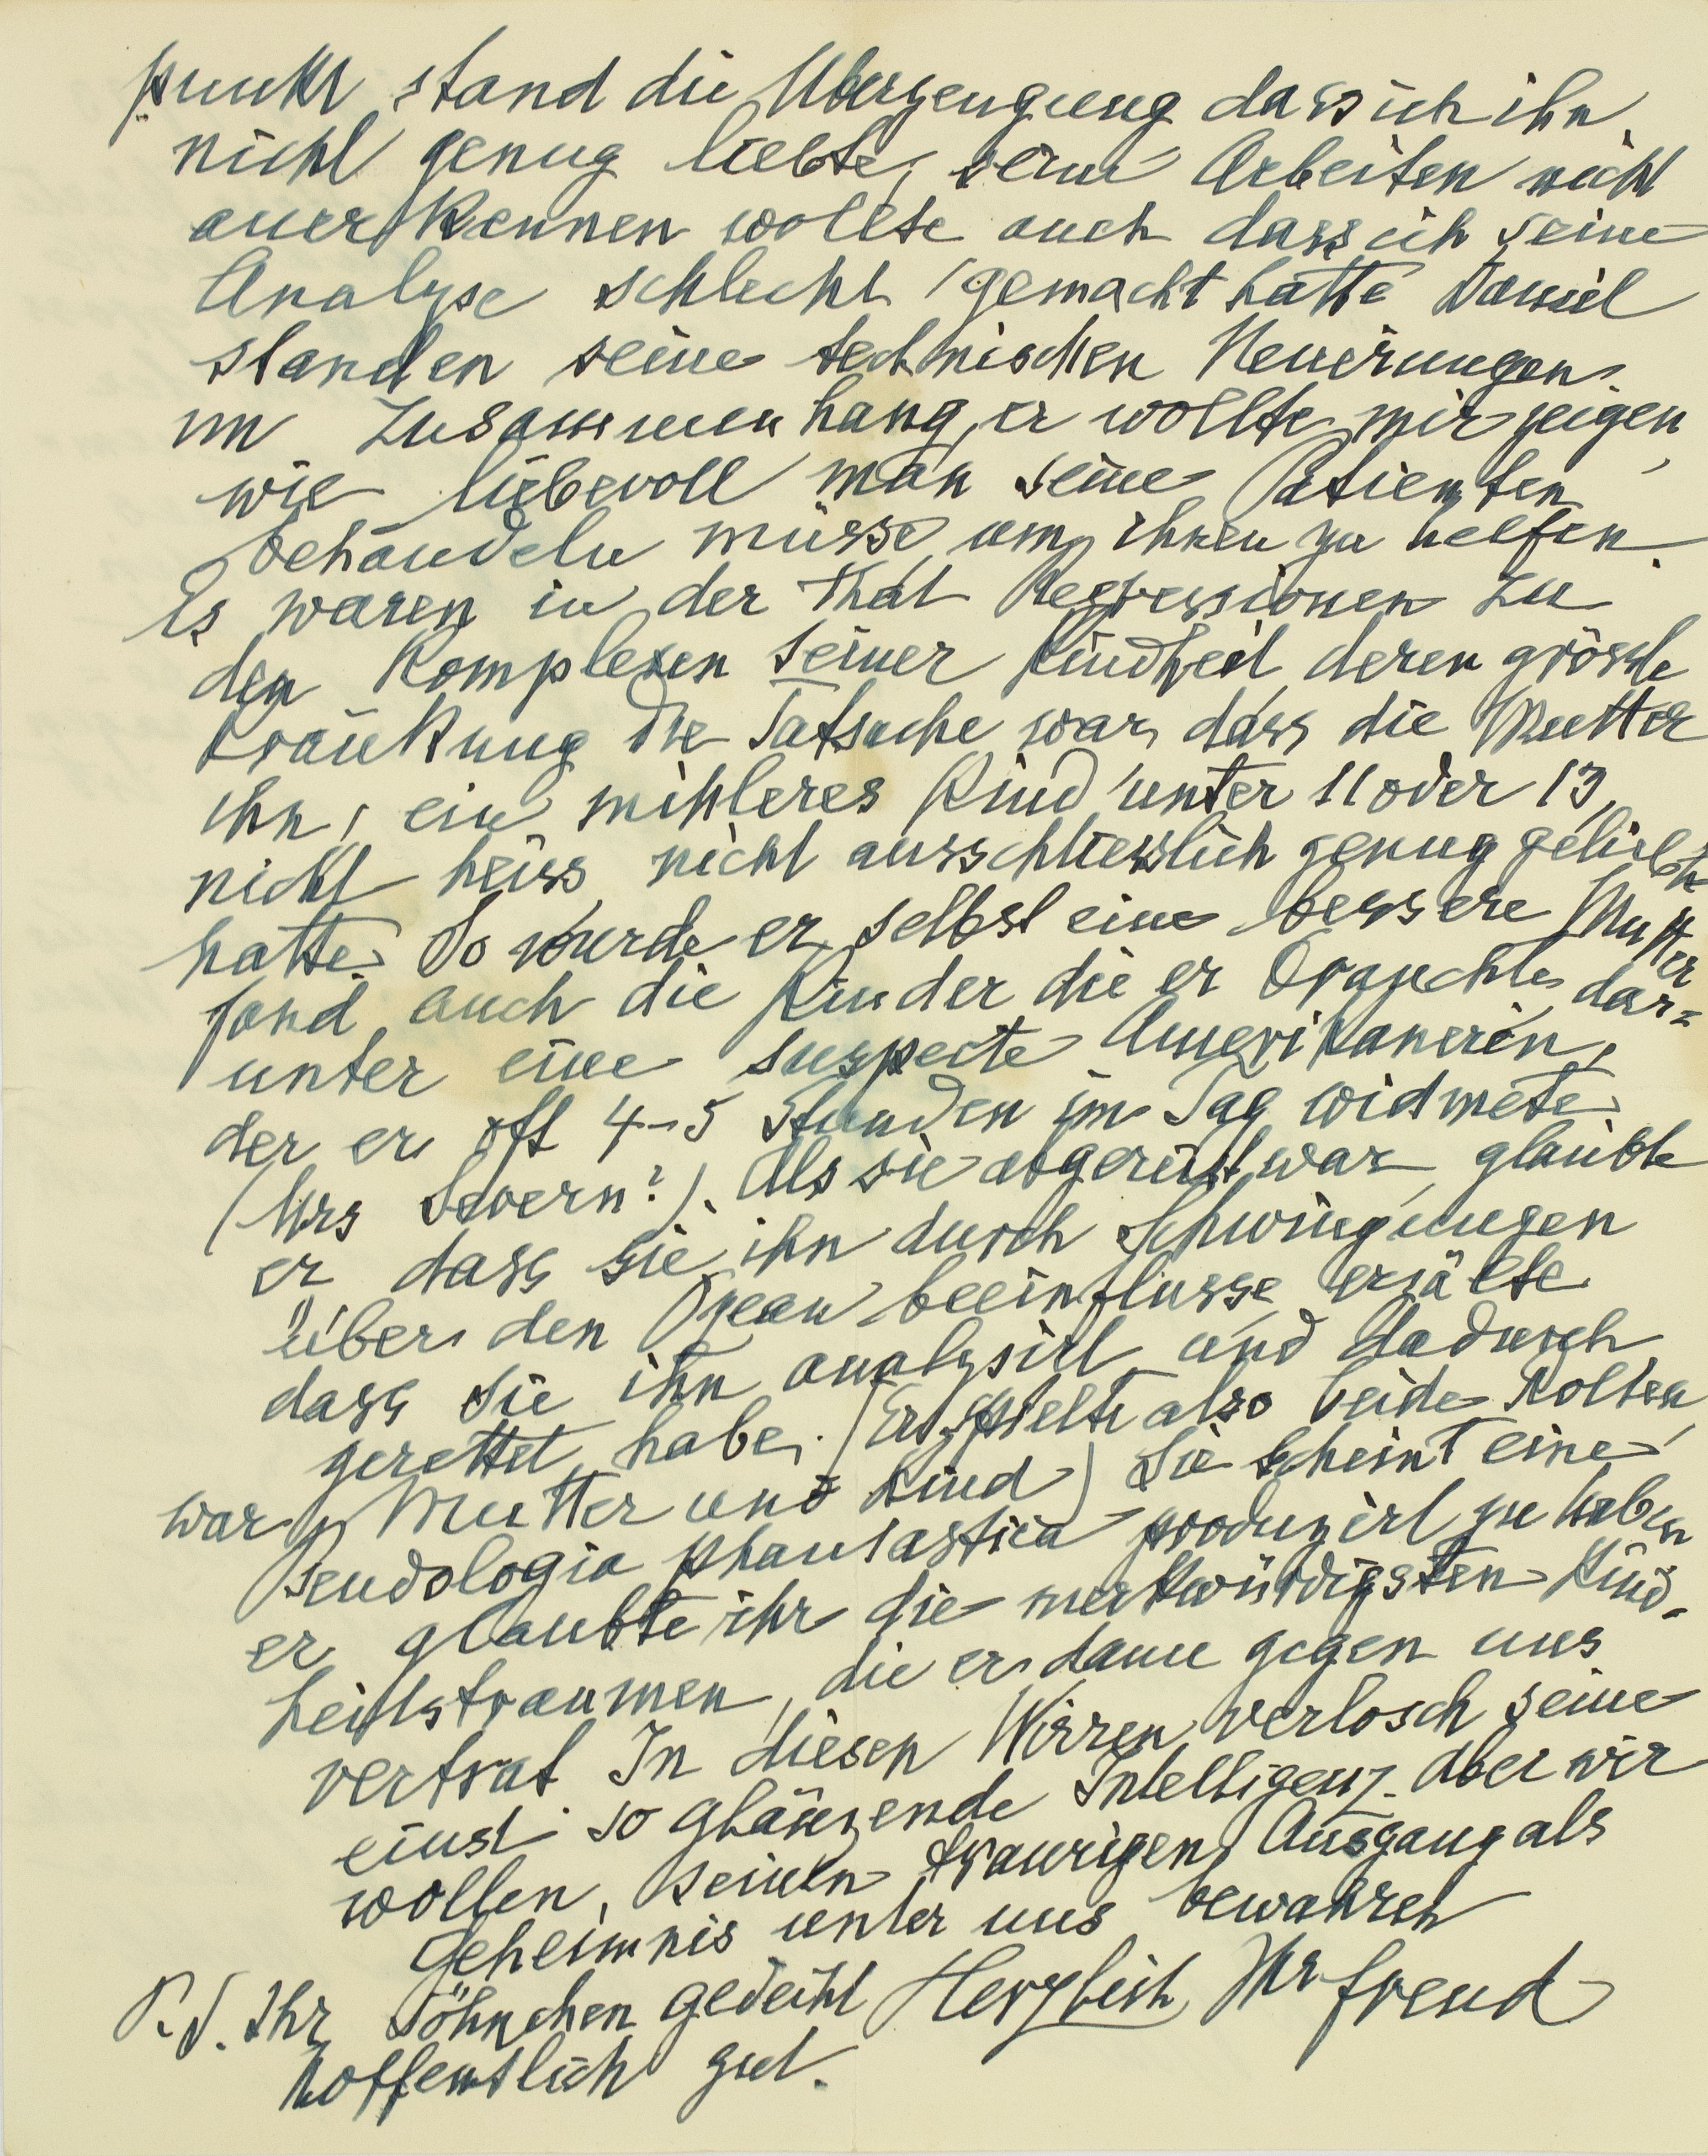 punkt stand die Überzeugung dass ich ihn
nicht genug liebte, seine Arbeiten nicht
anerkennen wollte auch dass ich seine
Analyse schlecht gemacht hatte Damit
standen seine technischen Neuerungen
im Zusammenhang, er wollte mir zeigen,
wie liebevoll man seine Patienten
behandeln müsse, um ihnen zu helfen.
Es waren in der That Regressionen zu
den Komplexen seiner Kindheit deren grösste
Kränkung die Tatsache war, dass die Mutter
ihn, ein mittleres Kind unter 11 oder 13,
nicht heiss, nicht ausschliesslich genug geliebt
hatte. So wurde er selbst eine bessere Mutter
fand auch die Kinder die er brauchte, dar=
unter eine suspecte Amerikanerin,
der er oft 4-5 Stunden im Tag widmete
(Mrs Severn?). Als sie abgereist war, glaubte
er dass sie ihn durch Schwingungen
über den Ozean beeinflusse, erzälte
dass sie ihn analysirt und dadurch
gerettet habe. (Er spielte also beide Rollen,
war Mutter und Kind) Sie scheint eine
Pseudologia phantastica produzirt zu haben
er glaubte ihr die merkwürdigsten Kind-
heitstraumen, die er dann gegen uns
vertrat. In diesen Wirren verlosch seine
einst so glänzende Intelligenz. Aber wir
wollen, seinen traurigen Ausgang als
Geheimnis unter uns bewahren
Herzlich Ihr Freud
P.S. Ihr Söhnchen gedeiht
hoffentlich gut.